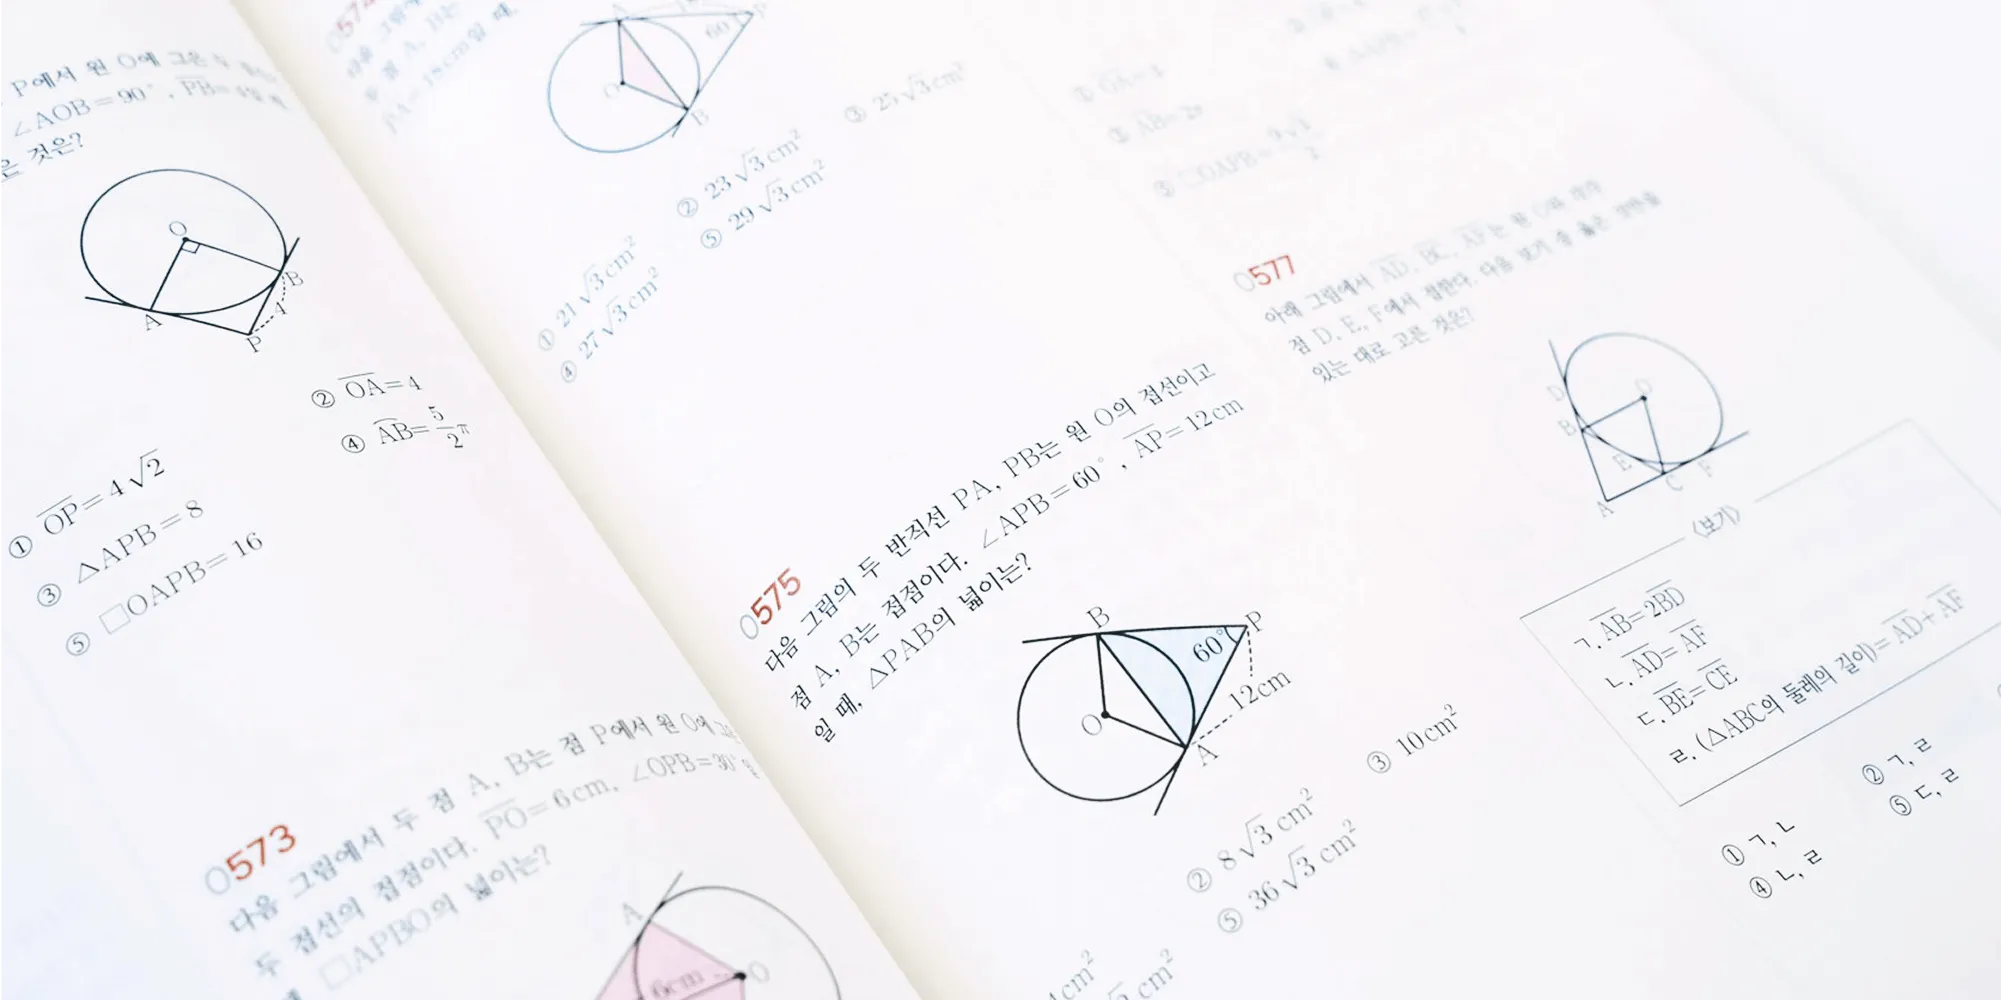 P에서 원 O에 그은 두
∠AOB=90°, PB=4일 때
은 것은?
O
B
4
A
P
① OP=4√2
② OA=4
③ △APB=8
④ AB=5/2π
⑤ □OAPB=16
0573
다음 그림에서 두 점 A, B는 점 P에서 원 O에 그은
두 접선의 접점이다. PO=6cm, ∠OPB=30°일
때 □APBO의 넓이는?
A
6cm
O
0574
다음 그림
두 점 A, B는
PA=18cm일 때,
A
P
60°
O
B
① 21√3cm²
② 23√3cm²
③ 25√3cm²
④ 27√3cm²
⑤ 29√3cm²
0575
다음 그림의 두 반직선 PA, PB는 원 O의 접선이고
점 A, B는 접점이다. ∠APB=60°, AP=12cm
일 때, △PAB의 넓이는?
B
P
60°
12cm
O
A
② 8√3cm²
③ 10cm²
⑤ 36√3cm²
cm²
cm²
⑤ □OAPB=
0577
아래 그림에서 AD, BC, AF는 원 O와 각각
점 D, E, F에서 접한다. 다음 보기 중 옳은 것만을
있는 대로 고른 것은?
D
O
B
E
C
F
A
<보기>
ㄱ. AB=2BD
ㄴ. AD=AF
ㄷ. BE=CE
ㄹ. (△ABC의 둘레의 길이)=AD+AF
① ㄱ, ㄴ
② ㄱ, ㄹ
④ ㄴ, ㄹ
⑤ ㄷ, ㄹ